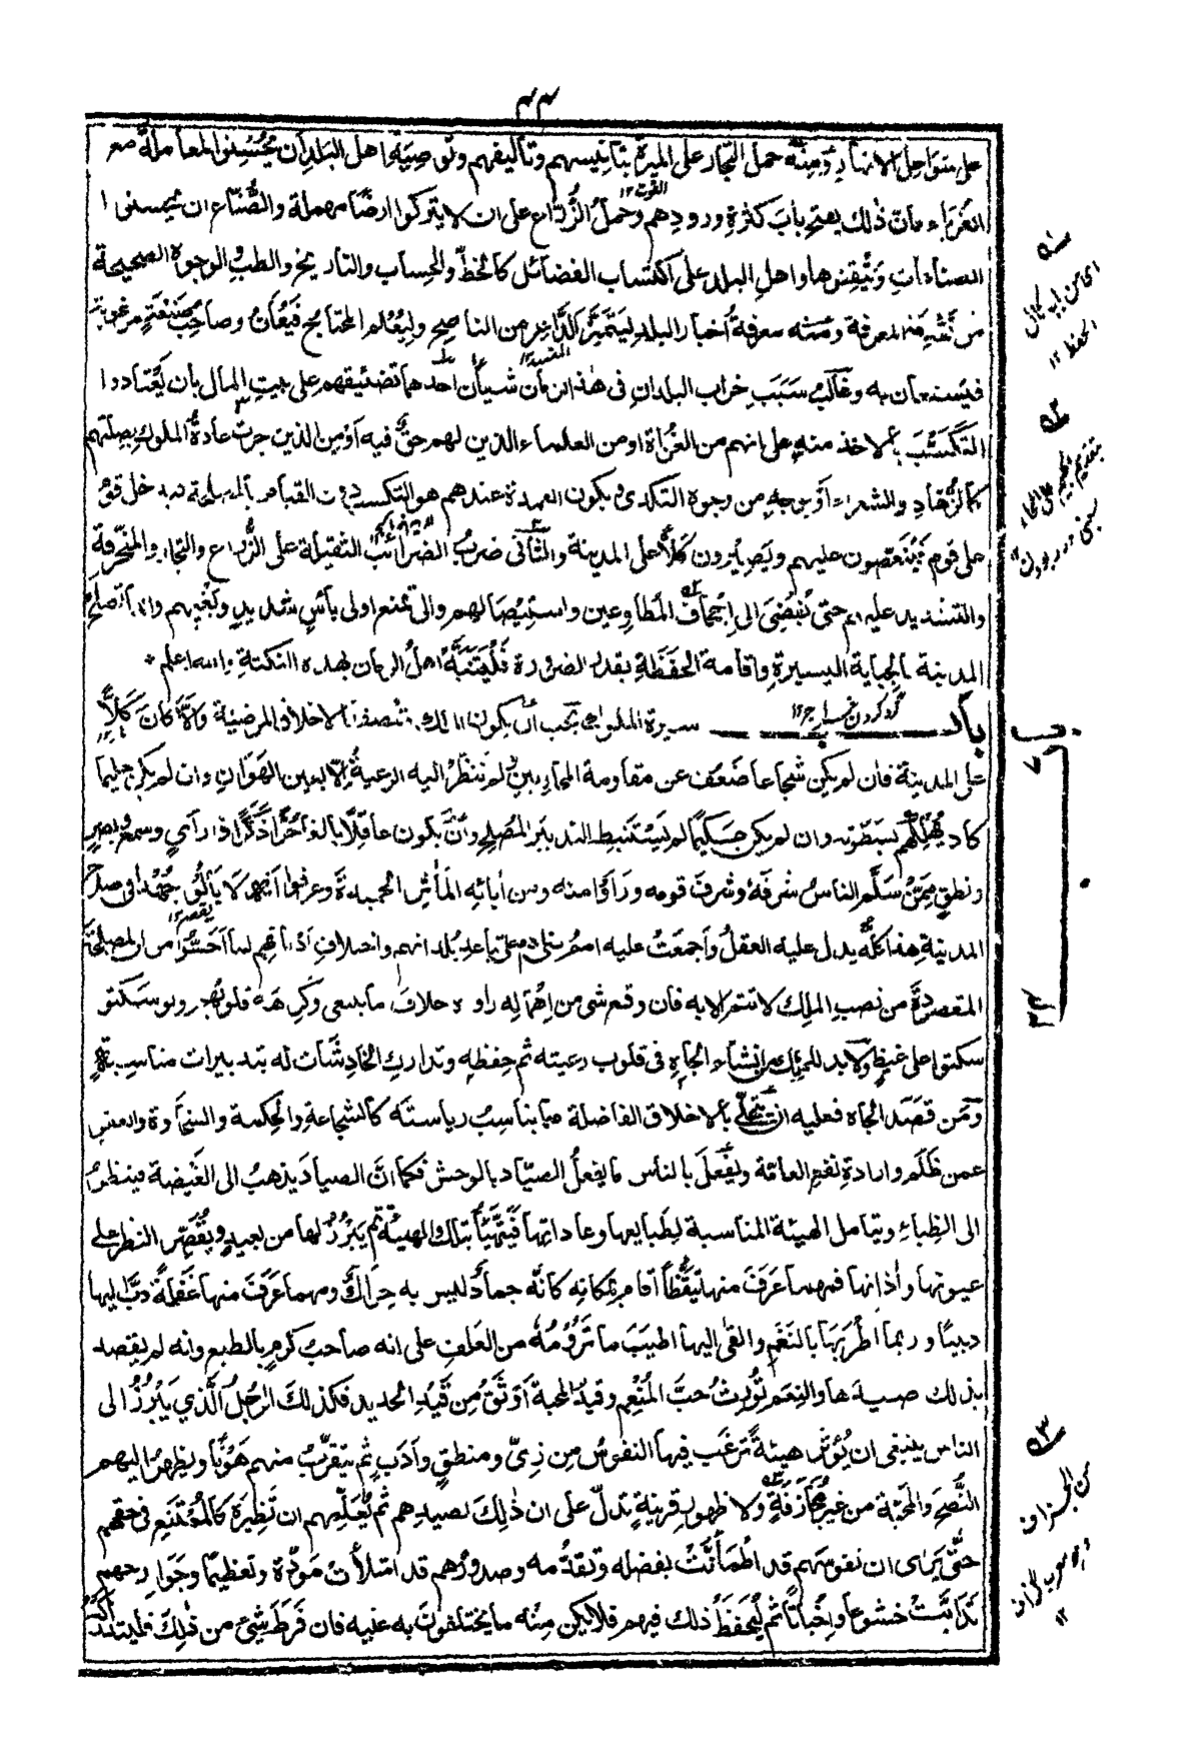 ٤٤
على سَوَاحِلِ الانهارِ وَمِنْهُ حمل التُجّار على المِيرةِ بتأنِيسهم وتأليفهم وتَوصِيَةُ اهل البَلَدِ اَن يُحْسِنُوا المعامَلَةَ مع
الغُرَبَاء فان ذٰلك يفتح بابَ كثرةِ ورودِهم وحملُ الزُّرّاع على ان لا يتركوا ارضًا مهملة والصُّنّاع ان يُحسنوا
القوت ١٢
الصناعاتِ ويُتْقِنوها واهلِ البلد على اكتساب الفضائل كالخطِّ والحِسابِ والتاريخ والطب والوجوهِ الصحيحةِ
من تَقْدِمَة المعرفة ومنه معرفةُ أخبار البلد ليَتَمَيَّزَ الدَّاعِرُ من الناصح وليُعْلم المحتاج فَيُعَانَ وصاحِبُ صَنْعَةٍ مرغوبةٍ
فيُستعان به وغالبُ سَبَبِ خراب البلدانِ فى هٰذا الزمان شيآن احدهما تضئيقهم على بيتِ المال بأن يَعْتادوا
التَّكَسُّبَ بالاخذ منه على انهم من الغُزاة او من العلماء الذين لهم حقٌّ فيه اَوْ مِن الذين جرت عادةُ الملوك بصِلَتهم
كالزُّهّادِ والشعراء اَوْ بوجهٍ من وجوه التكدى ويكون العمدة عندهم هو التكسب دون القيام بالمصلحة فيدخل قومٌ
على قوم فيُنَغِّصون عليهم ويَصِيرون كَلاًّ على المدينة والثَّانى ضربُ الضرائب الثقيلة على الزُّرّاع والتجار والمتحرّفةِ
والتشديد عليهم حتى يُفْضِىَ الى اِجْحاف المُطاوِعين واستِئصالهم والى تمنع اولى بأسٍ شديدٍ وبَغْيِهم وانما تصلح
المدينة بالجباية اليسيرةِ واقامة الحَفَظَةِ بقدر الضرورة فَلْيَتَنَبَّهْ اهلُ الزمان لهذه النكتةِ والله اعلم
بابُ سيرة الملوك يجب اَن يكون الملك متصفا بالاخلاق المرضيّة والاّ كان كَلاًّ
على المدينة فان لم يكن شجاعا ضَعُفَ عن مقاومة المحاربين ولم تنظُرْ اليه الرعيةُ الا بعين الهَوَانِ وان لم يكن حليما
كاد يُهْلِكُهم بسَطْوَته وان لم يكن حكيمًا لم يَسْتَنبِط التدبيرَ المُصْلِحَ وأنْ يكون عاقِلًا بالغًا حُرًّا ذَكَرًا ذا رأىٍ وسمعٍ وبصرٍ
ونطقٍ مِمَّنْ سَلَّم الناسُ شرفَهُ وشرفَ قومه ورَأوا منه ومن اٰبائِه المَاٰثِر الحميدةَ وعرفوا انه لا يَألُو جُهْدًا فى صلاح
يقصر ١٢
المدينةِ هذا كلُّه يدل عليه العقلُ واَجمَعَتْ عليه اممُ بنى اٰدم على تباعدِ بُلدانهم واختلافِ اَدْيانهم لما اَحَسُّوا من ان المصلحة
المقصودَةَ من نصبِ الملِك لا تتم الا به فان وقع شئ من اِهْمالِه راوه خلافَ ما ينبغى وكَرِهَهُ قلوبُهم ولو سَكتوا
سكتوا على غيظٍ ولا بد للملِك من اِنشاء الجاهِ فى قلوب رعيته ثم حِفظِه وتداركِ الخادِشَات له بتدبيرات مناسبةٍ
ومَن قصَد الجاه فعليه ان يتحلّى بالاخلاق الفاضلة مما يناسِبُ رياستَه كالشجاعةِ والحِكمة والسخاوة والعفو
عمن ظَلَم وارادةِ نفعِ العامّة ويفْعلَ بالناس ما يفعلُ الصيّاد بالوحش فكما انّ الصيادَ يذهبُ الى الغَيضة فينظرُ
الى الظباءِ ويتامل الهيئة المناسبة لِطَبايعها وعاداتها فَيَتَهَيَّأُ بتلك الهيئة ثم يَبْرُزُ لها من بعيدٍ ويُقْصِرُ النظر على
عيونها واٰذانها فمهما عَرَفَ منها تيَقُّظًا اَقام بمكانِه كانّه جمادٌ ليس به حِراكٌ ومهما عَرَفَ منها غَفلةً دبَّ اليها
دبيبًا وربما اَطْرَبَها بالنَغَمِ والقى اليها اطيبَ ما تَرُومُهُ من العَلفِ على انه صاحبُ كَرمٍ بالطبع وانه لم يقصد
بذلك صيدَها والنِعَم تُورِثُ حُبَّ المُنْعِم وقيدُ المحبة اَوْثَقُ مِن قَيْدِ الحديد فكذلكَ الرجُلُ الَّذي يَبْرُزُ الى
الناس ينبغى ان يُؤثر هيئةً تَرغَب فيها النفوسُ مِن زِىٍّ ومنطقٍ واَدَب ثم يَتقرّبُ منهم هَوْنًا ويظهرُ اليهم
النُّصحَ والمَحبّة من غير مُجَازَفَةٍ ولا ظهورِ قرينةٍ تدلّ على ان ذٰلكَ لصيدِهم ثم يُعَلِّمهم ان نَظيرَه كالمُمْتَنِع فى حقهم
حتّى يَرى ان نفوسَهم قد اطْمَأنَّتْ بفضله وتقدُّمه وصدورُهم قد امتلأتْ مَودّة وتعظيمًا وجَوارِحهم
تَدَأبَتْ خشوعًا وإخْباتًا ثم لْيَحْفَظْ ذلك فيهم فلا يكن مِنْه ما يختلفونَ به عليه فان فَرَطَ شئ من ذٰلِكَ فليتداركْهُ
الحفظ ١٢